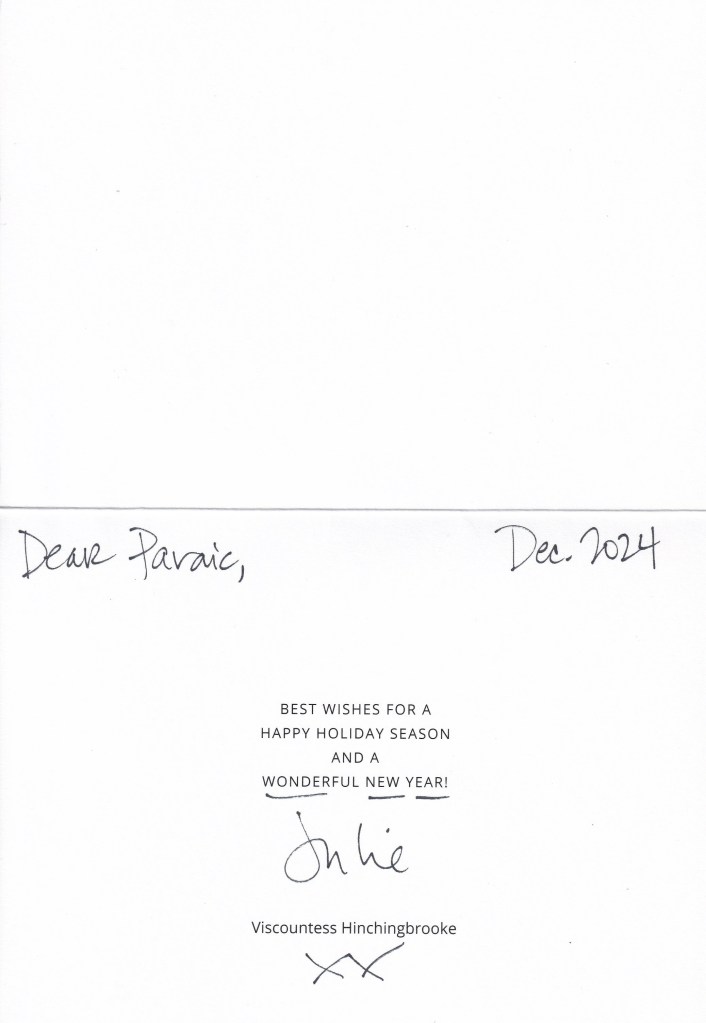 Dear Paraic,
Dec. 2024
BEST WISHES FOR A
HAPPY HOLIDAY SEASON
AND A
WONDERFUL NEW YEAR!
Julie
Viscountess Hinchingbrooke
XX